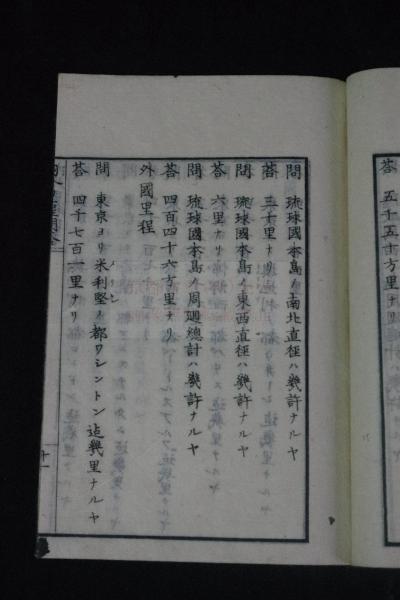 答 五千五十方里ナリ
問 琉球國本島ノ南北直徑ハ幾許ナルヤ
答 三十里ナリ
問 琉球國本島ノ東西直徑ハ幾許ナルヤ
答 六里ナリ
問 琉球國本島ノ周廻總計ハ幾許ナルヤ
答 四百四十六方里ナリ
外國里程
問 東京ヨリ米利堅ノ都ワシントン迠幾里ナルヤ
答 四千七百一里ナリ
十一